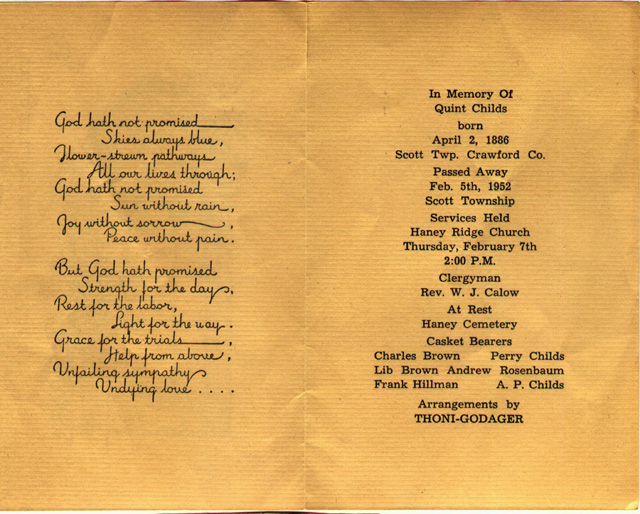 God hath not promised
Skies always blue,
Flower-strewn pathways
All our lives through;
God hath not promised
Sun without rain,
Joy without sorrow,
Peace without pain.
But God hath promised
Strength for the day,
Rest for the labor,
Light for the way.
Grace for the trials,
Help from above,
Unfailing sympathy
Undying love . . . .
In Memory Of
Quint Childs
born
April 2, 1886
Scott Twp. Crawford Co.
Passed Away
Feb. 5th, 1952
Scott Township
Services Held
Haney Ridge Church
Thursday, February 7th
2:00 P.M.
Clergyman
Rev. W. J. Calow
At Rest
Haney Cemetery
Casket Bearers
Charles Brown Perry Childs
Lib Brown Andrew Rosenbaum
Frank Hillman A. P. Childs
Arrangements by
THONI-GODAGER